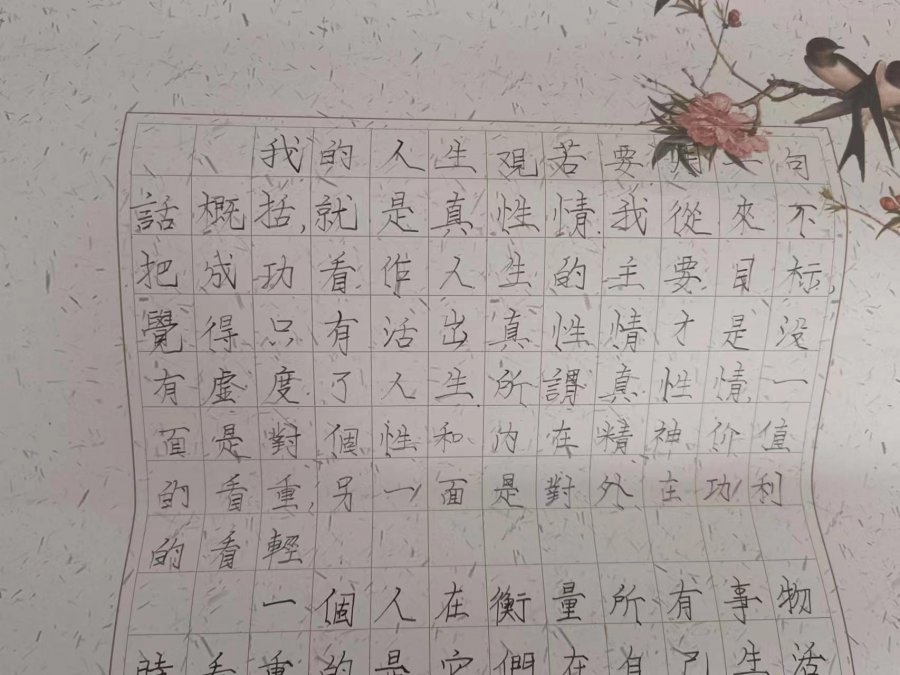 我的人生观若要用一句
話概括,就是真性情.我從來不
把成功看作人生的主要目标,
覺得只有活出真性情才是没
有虚度了人生.所謂真性情一
面是對個性和内在精神价值
的看重,另一面是對外在功利
的看輕
一個人在衡量所有事物
時看重的是它們在自己生活